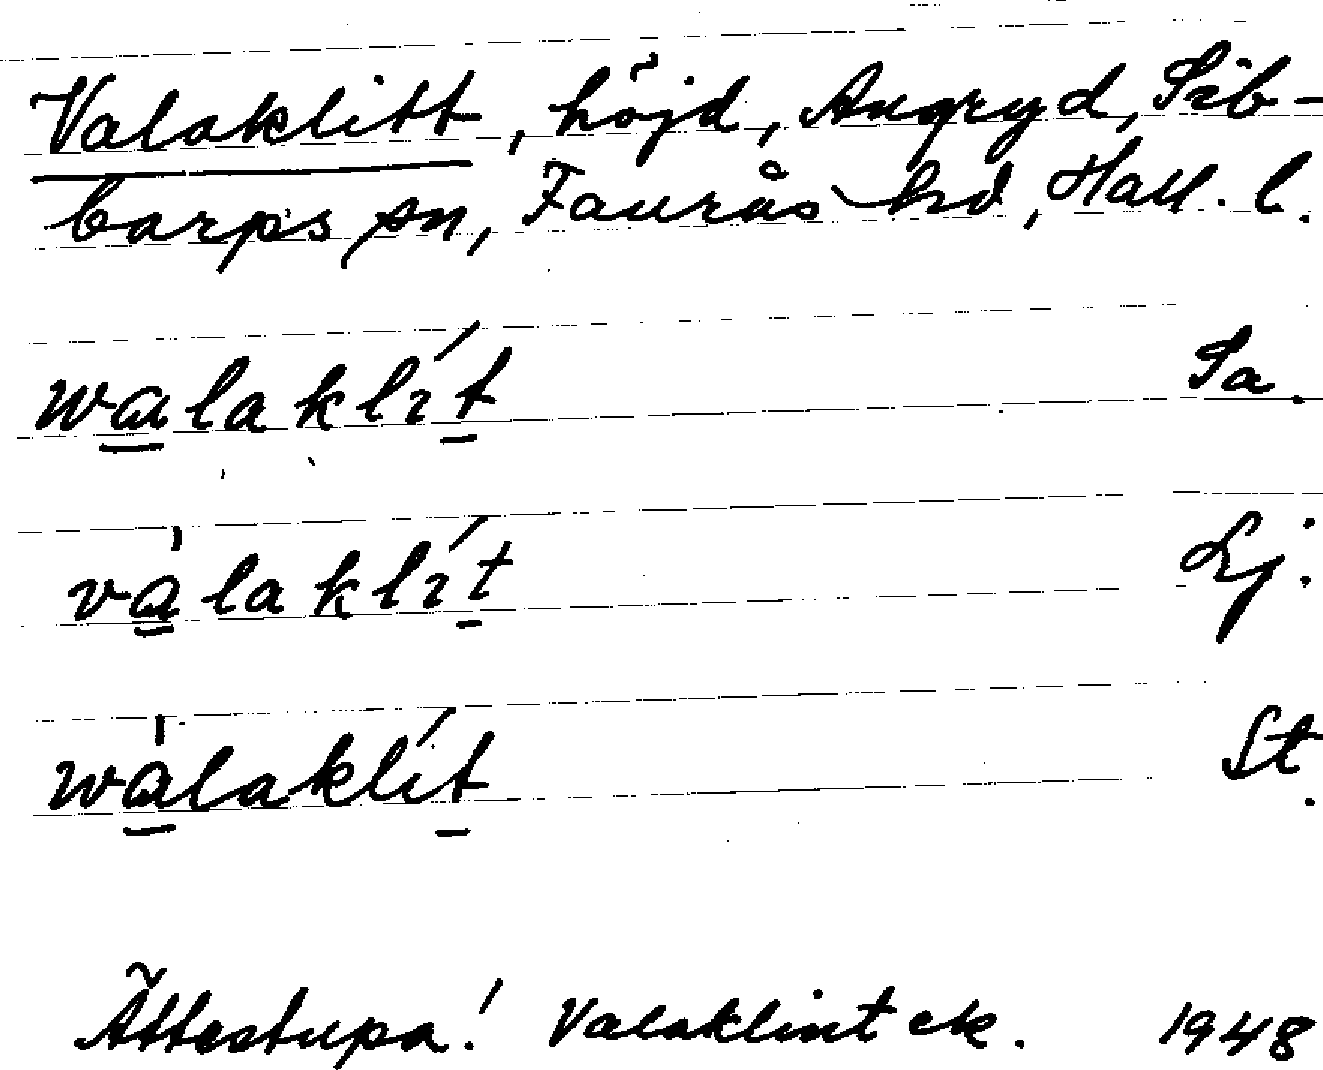 Valaklitt, höjd, Angryd, Sib-
barps sn, Faurås hd, Hall. l.
walaklít Sa.
vàlaklít Lj.
wàlaklít St.
Ättestupa! Valaklint ek. 1948